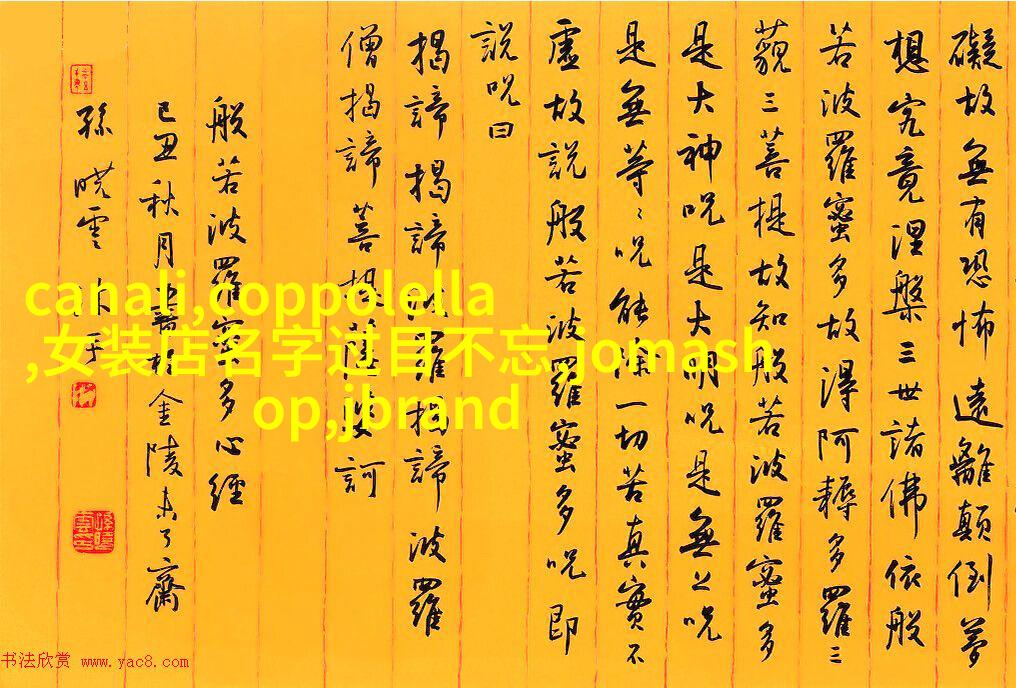 礙故無有恐怖遠離顛倒夢
想究竟涅槃三世諸佛依般
若波羅蜜多故得阿耨多羅三
藐三菩提故知般若波羅蜜多
是大神呪是大明呪是無上呪
是無等〻呪能除一切苦真實不
虛故說般若波羅蜜多呪即
說呪曰
揭諦揭諦波羅揭諦波羅
僧揭諦菩提薩婆訶
般若波羅蜜多心經
己丑秋月書於金陵未了齋
孫晓雲沐手
canali,coppolella
,女装店名字过目不忘,jomash
op,jbrand
书法欣赏 www.yac8.com